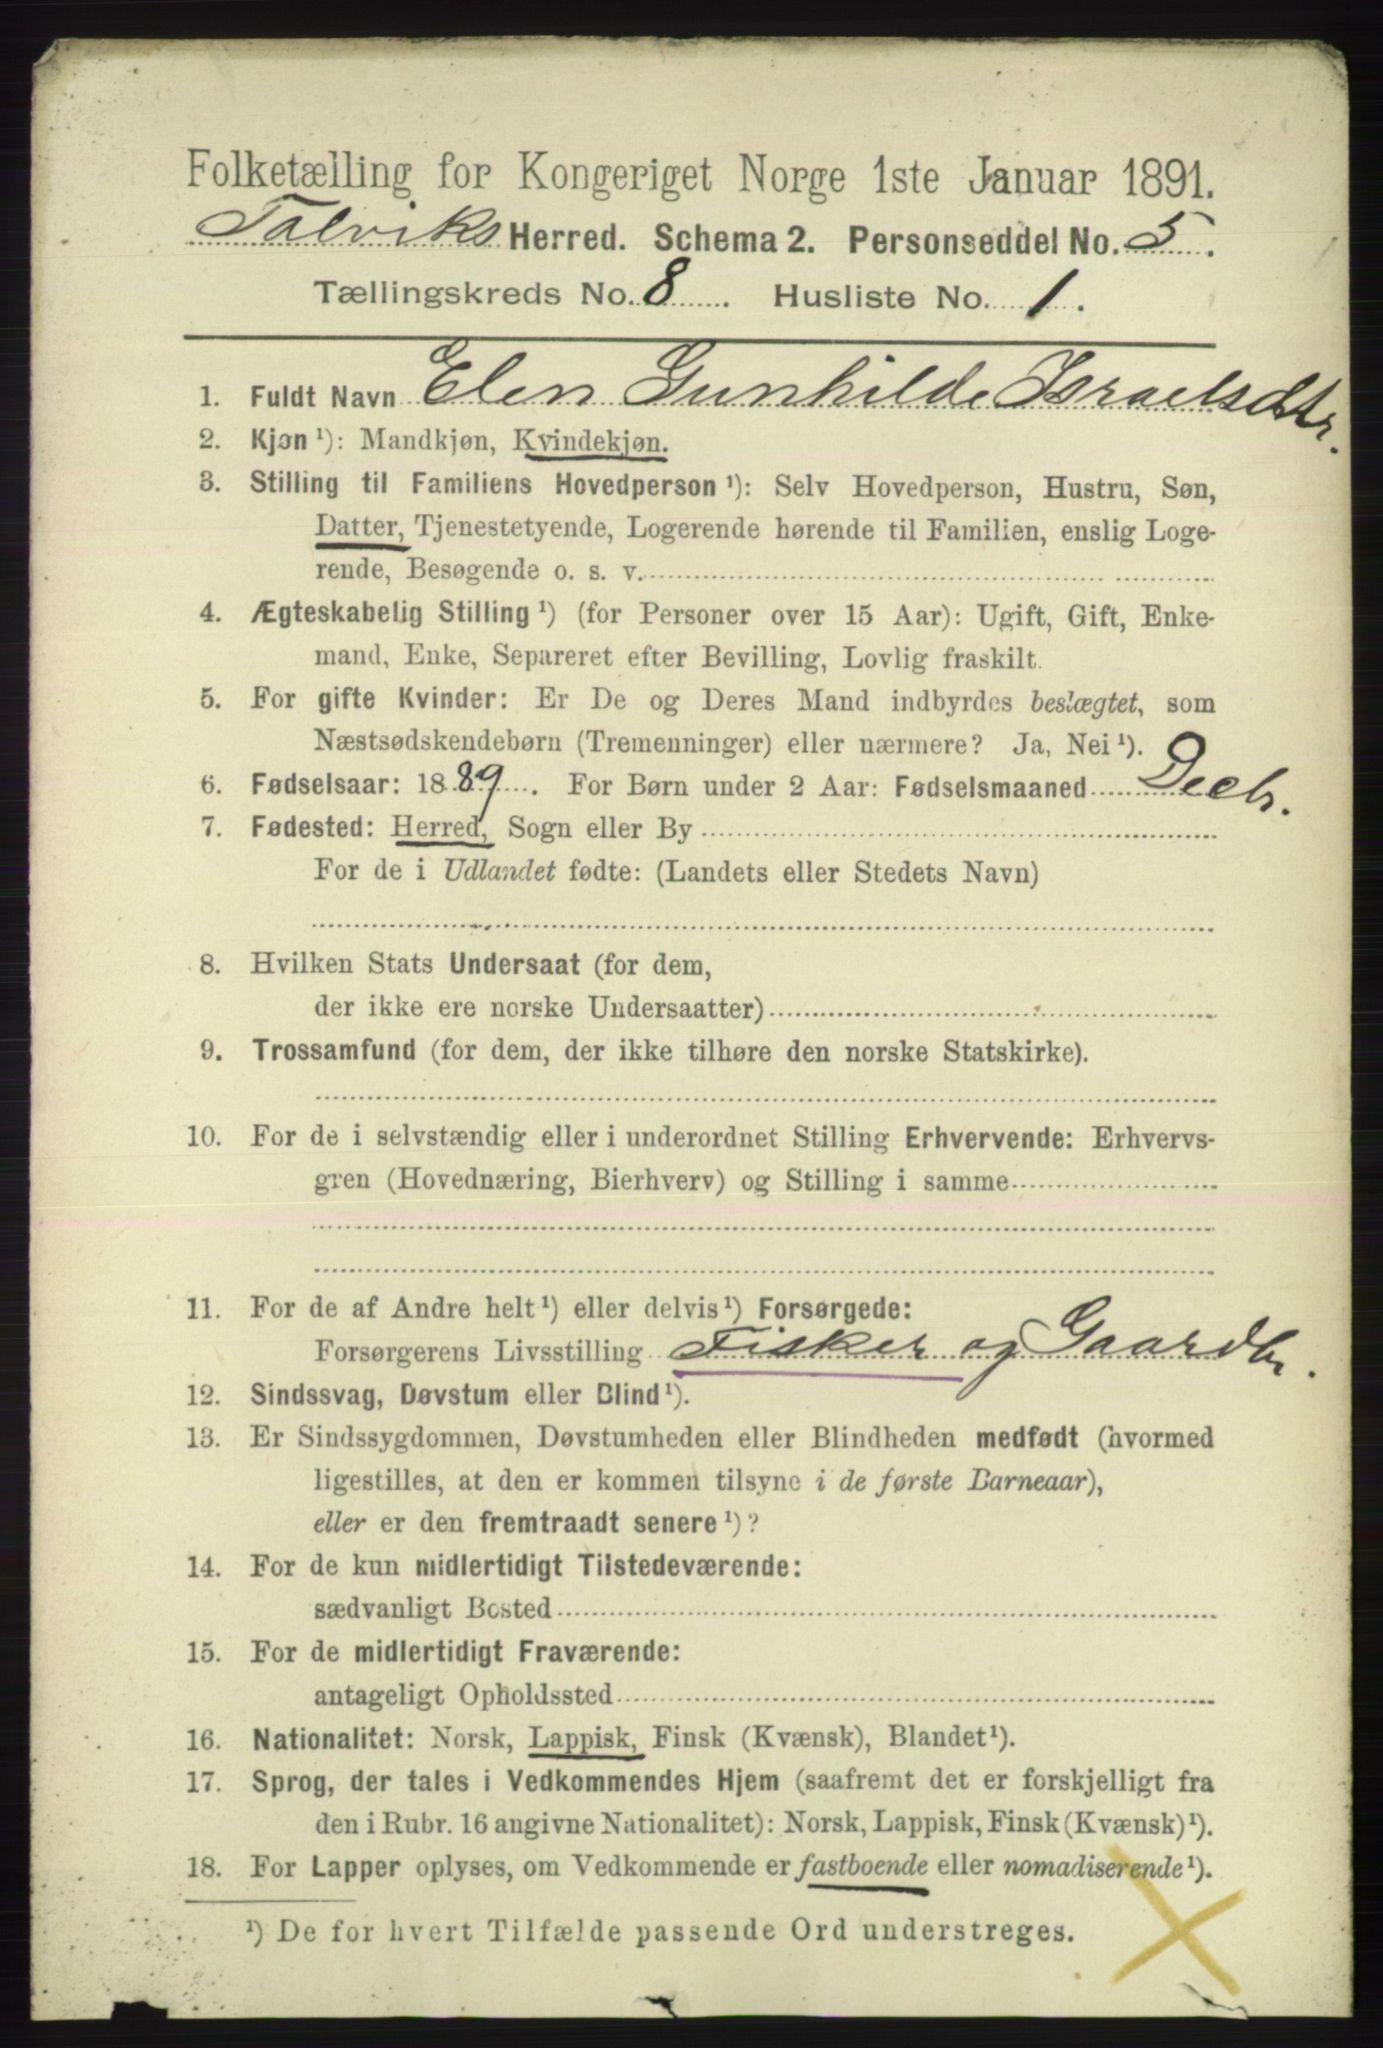 Folketælling for Kongeriget Norge 1ste Januar 1891.
Talviks Herred. Schema 2. Personseddel No. 5.
Tællingskreds No. 8. Husliste No. 1.
1. Fuldt Navn Elen Gunhilde Israelsdtr.
2. Kjøn ¹): Mandkjøn, Kvindekjøn.
3. Stilling til Familiens Hovedperson ¹): Selv Hovedperson, Hustru, Søn,
Datter, Tjenestetyende, Logerende hørende til Familien, enslig Loge-
rende, Besøgende o. s. v.
4. Ægteskabelig Stilling ¹) (for Personer over 15 Aar): Ugift, Gift, Enke-
mand, Enke, Separeret efter Bevilling, Lovlig fraskilt.
5. For gifte Kvinder: Er De og Deres Mand indbyrdes beslægtet, som
Næstsødskendebørn (Tremenninger) eller nærmere? Ja, Nei ¹).
6. Fødselsaar: 1889. For Børn under 2 Aar: Fødselsmaaned Decbr.
7. Fødested: Herred, Sogn eller By
For de i Udlandet fødte: (Landets eller Stedets Navn)
8. Hvilken Stats Undersaat (for dem,
der ikke ere norske Undersaatter)
9. Trossamfund (for dem, der ikke tilhøre den norske Statskirke).
10. For de i selvstændig eller i underordnet Stilling Erhvervende: Erhvervs-
gren (Hovednæring, Bierhverv) og Stilling i samme
11. For de af Andre helt ¹) eller delvis ¹) Forsørgede:
Forsørgerens Livsstilling Fisker og Gaardbr.
12. Sindssvag, Døvstum eller Blind ¹).
13. Er Sindssygdommen, Døvstumheden eller Blindheden medfødt (hvormed
ligestilles, at den er kommen tilsyne i de første Barneaar),
eller er den fremtraadt senere ¹)?
14. For de kun midlertidigt Tilstedeværende:
sædvanligt Bosted
15. For de midlertidigt Fraværende:
antageligt Opholdssted
16. Nationalitet: Norsk, Lappisk, Finsk (Kvænsk), Blandet ¹).
17. Sprog, der tales i Vedkommendes Hjem (saafremt det er forskjelligt fra
den i Rubr. 16 angivne Nationalitet): Norsk, Lappisk, Finsk (Kvænsk) ¹).
18. For Lapper oplyses, om Vedkommende er fastboende eller nomadiserende ¹).
¹) De for hvert Tilfælde passende Ord understreges.